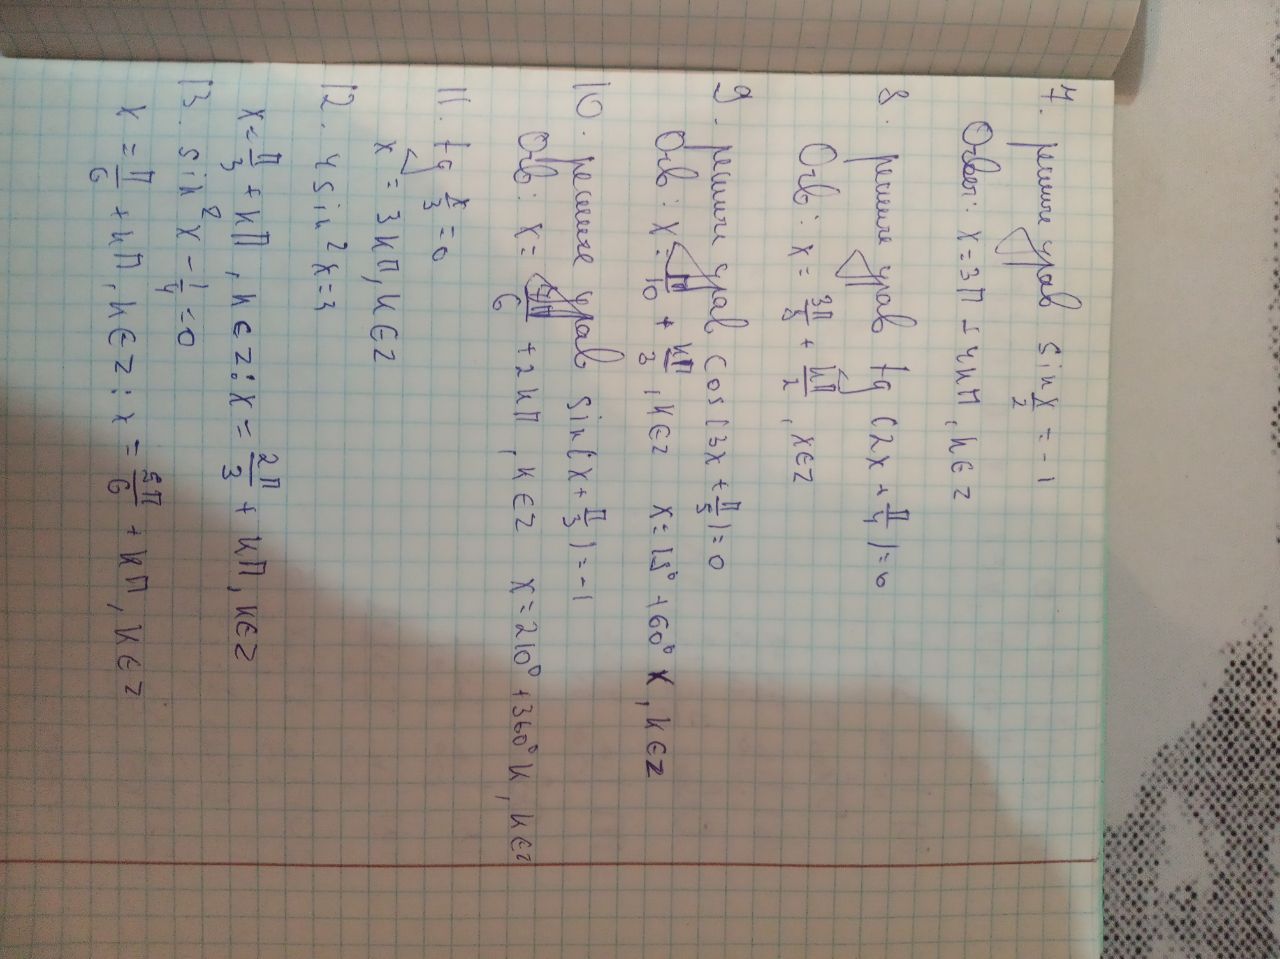 7. решите урав sin x/2 = -1
Ответ: x = 3π + 4kπ, k ∈ z
8. решите урав tg (2x + π/4) = 0
Отв: x = 3π/8 + kπ/2, x ∈ z
9. решите урав cos(3x + π/5) = 0
Отв: x = π/10 + kπ/3, k ∈ z x = 18° + 60° k, k ∈ z
10. решите урав sin(x + π/3) = -1
Отв: x = 7π/6 + 2kπ, k ∈ z x = 210° + 360° k, k ∈ z
11. tg x/3 = 0
x = 3kπ, k ∈ z
12. 4 sin² x = 3
x = π/3 + kπ, k ∈ z : x = 2π/3 + kπ, k ∈ z
13. sin² x - 1/4 = 0
x = π/6 + kπ, k ∈ z : x = 5π/6 + kπ, k ∈ z